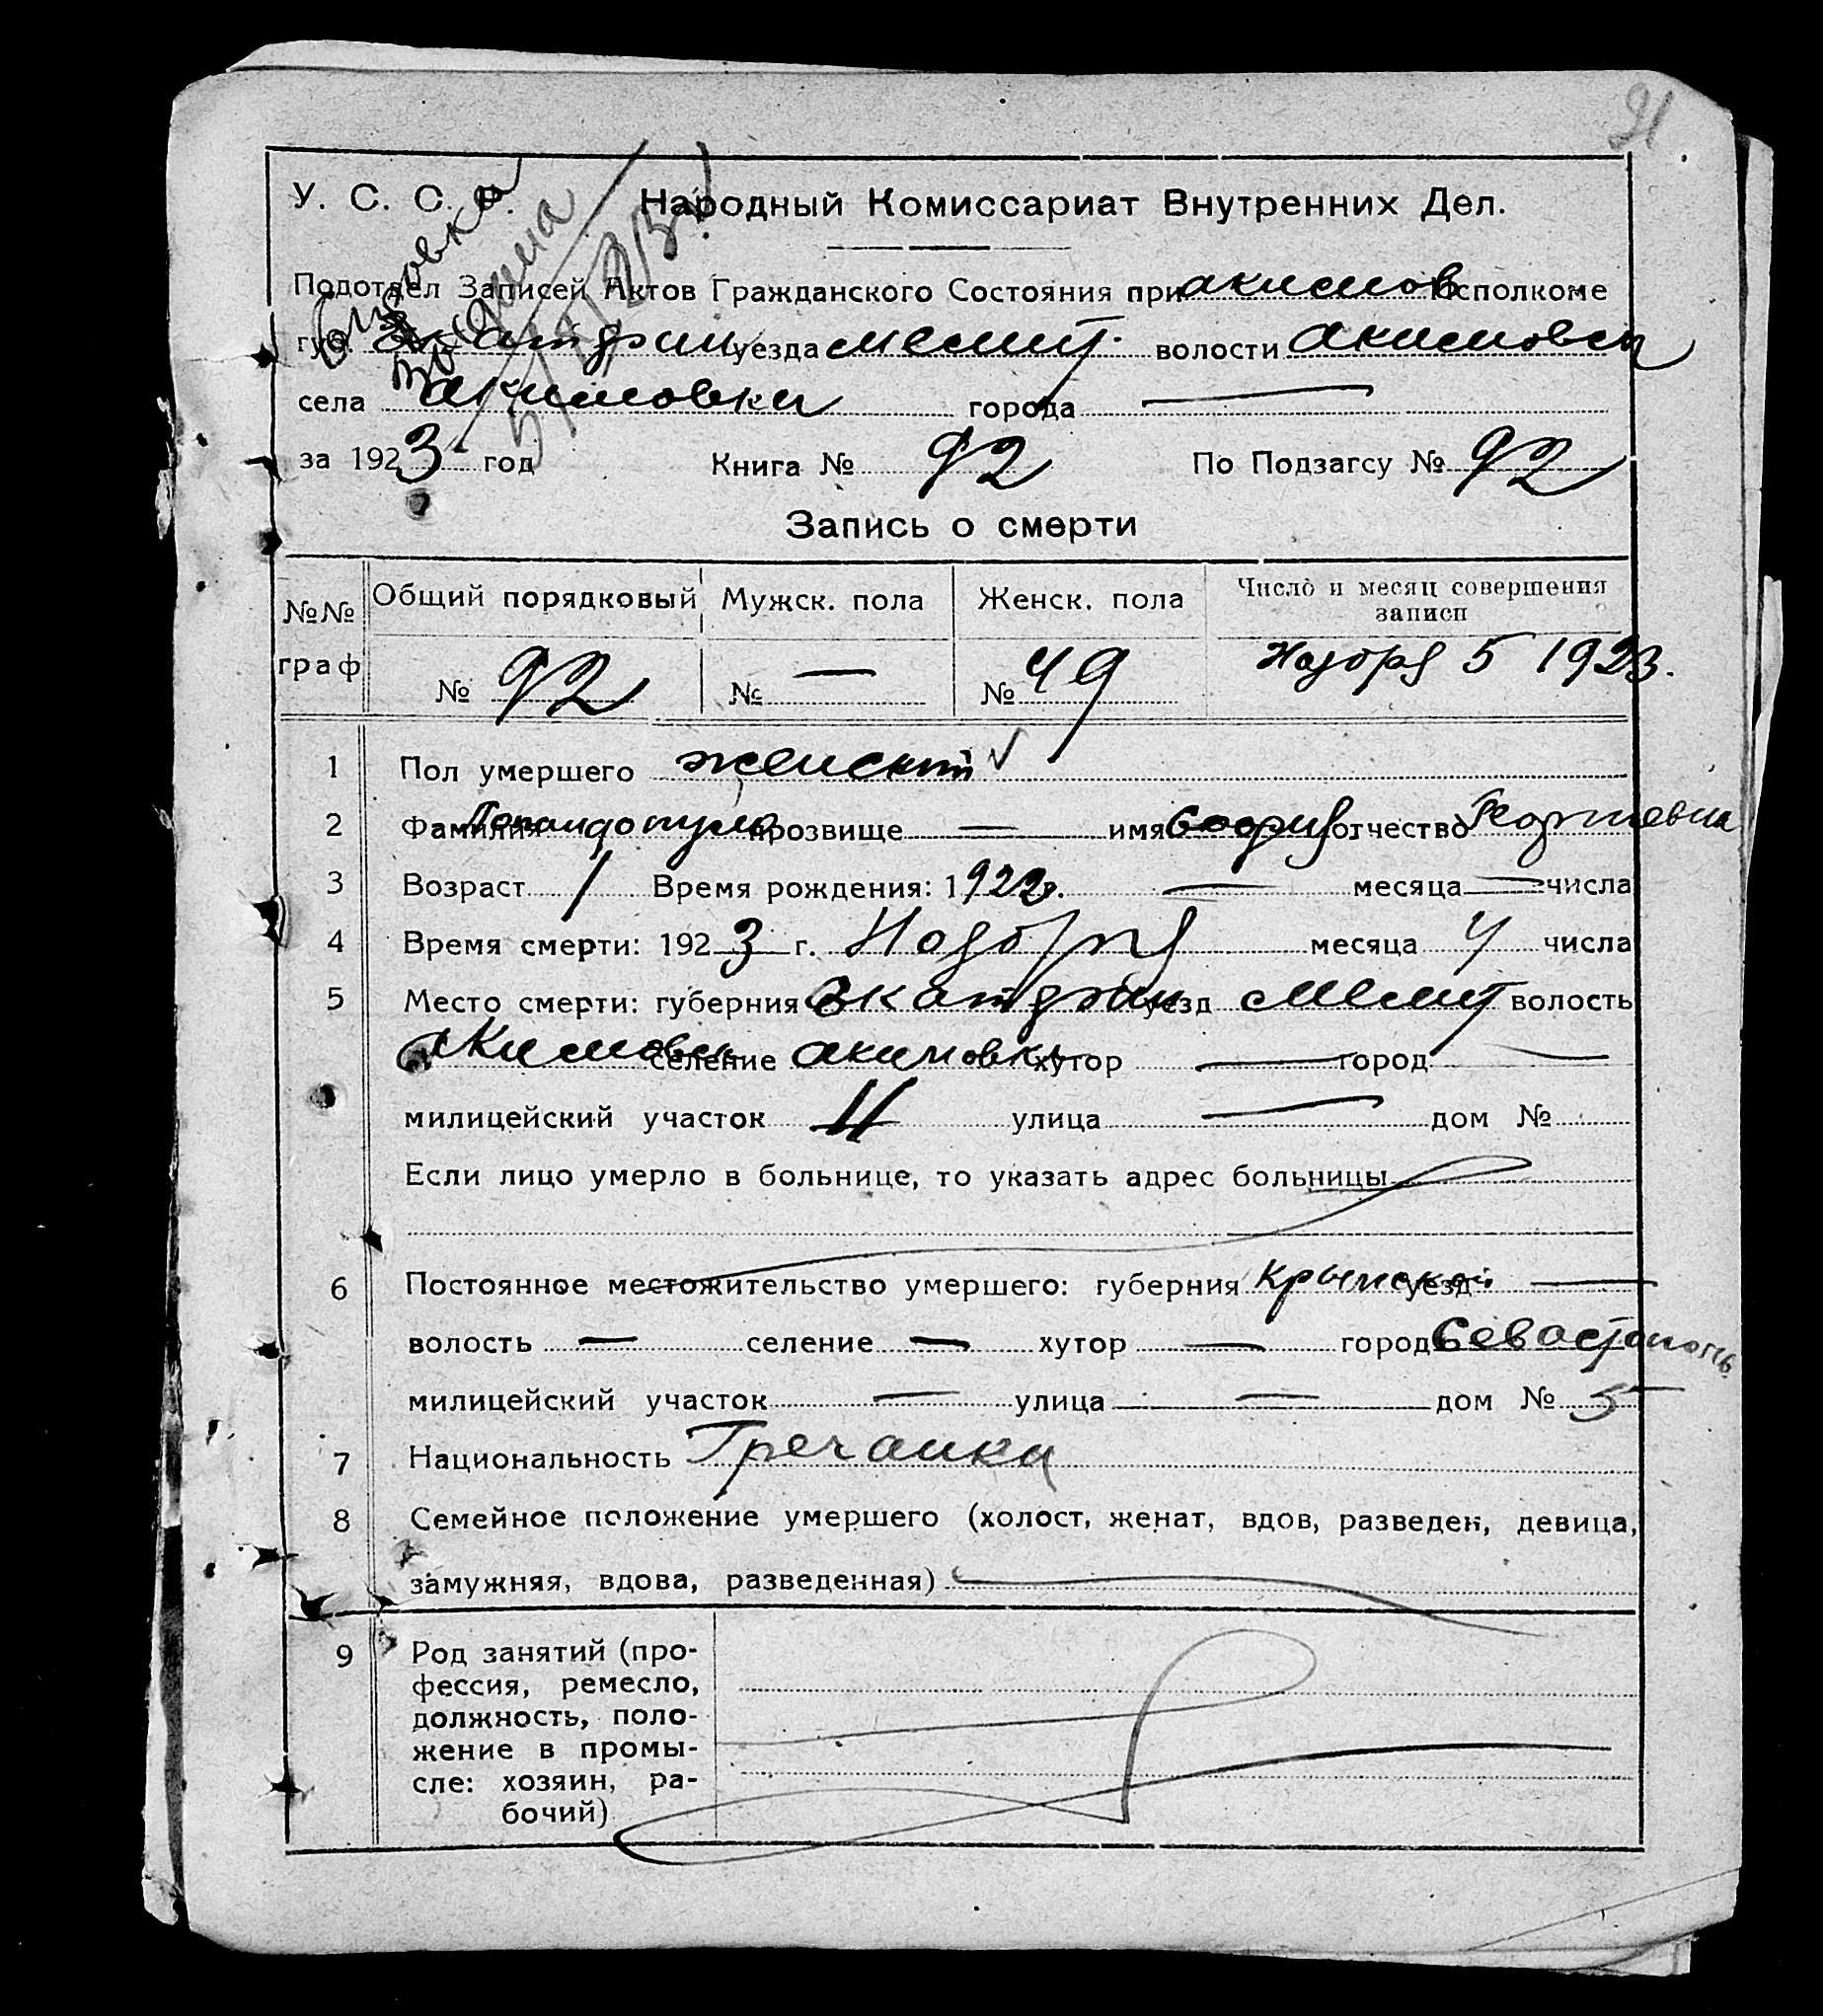 91
У. С. С. Р. Народный Комиссариат Внутренних Дел.
Подотдел Записей Актов Гражданского Состояния при Акимов Исполкоме
губ. Экатерин уезда Мелит. волости Акимовск
села Акимовки города —
за 1923 год Книга № 92 По Подзагсу № 92
Запись о смерти
№№ граф Общий порядковый Мужск. пола Женск. пола Число и месяц совершения записи
№ 92 № — № 49 Ноября 5 1923.
1 Пол умершего женский
2 Фамилия прозвище — имя София отчество Георгиевна
3 Возраст 1 Время рождения: 1922г. — месяца — числа
4 Время смерти: 1923 г. Ноября месяца 4 числа
5 Место смерти: губерния Экатерин уезд Мелит волость
Акимовск селение Акимовка хутор — город —
милицейский участок улица — дом №
Если лицо умерло в больнице, то указать адрес больницы
6 Постоянное местожительство умершего: губерния Крымской уезд —
волость — селение — хутор — город Севастополь
милицейский участок — улица — дом № 5
7 Национальность Гречанка
8 Семейное положение умершего (холост, женат, вдов, разведен, девица,
замужняя, вдова, разведенная)
9 Род занятий (про-
фессия, ремесло,
должность, поло-
жение в промы-
сле: хозяин, ра-
бочий)